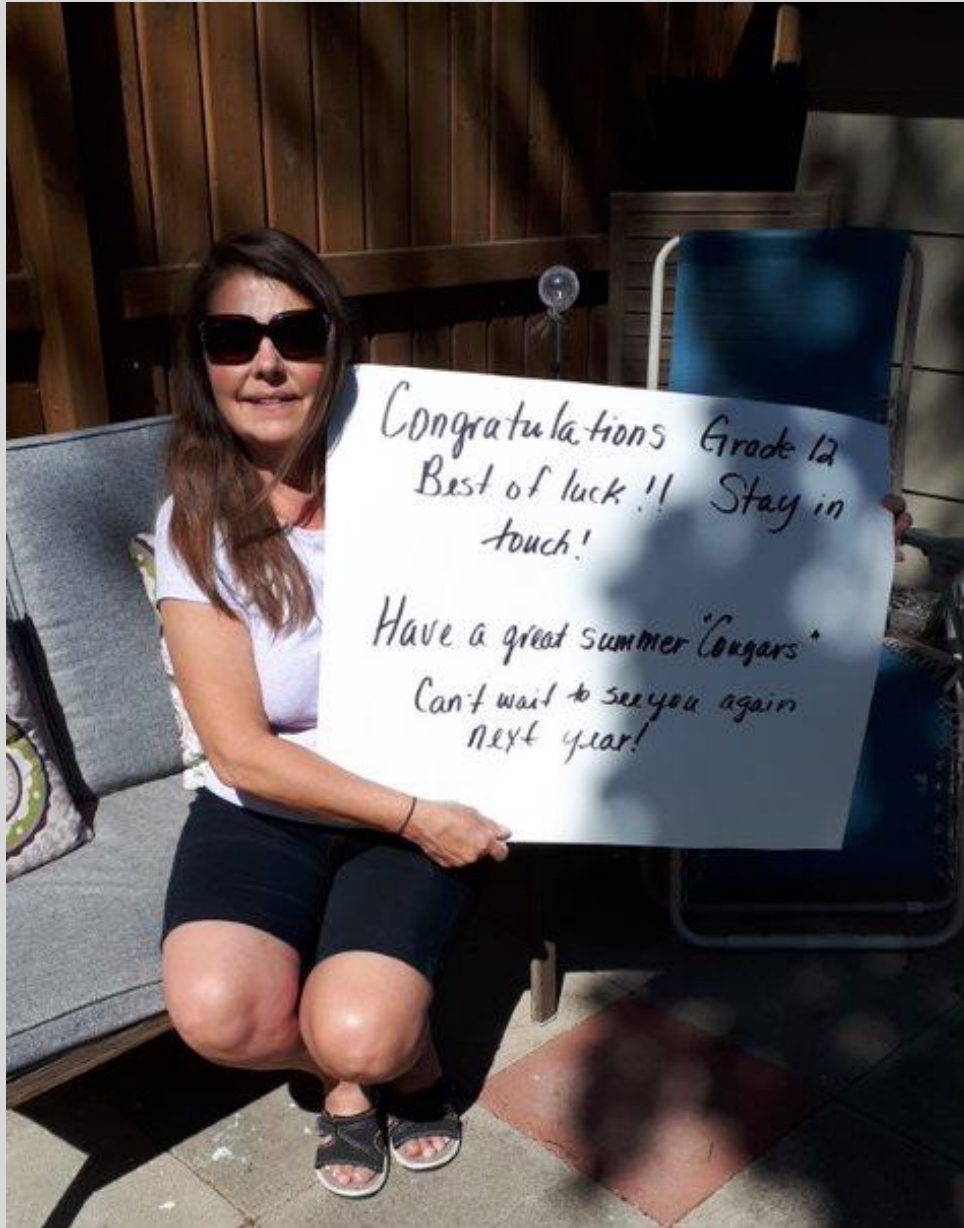 Congratulations Grade 12
Best of luck!! Stay in
touch!
Have a great summer "Cougars"
Can't wait to see you again
next year!